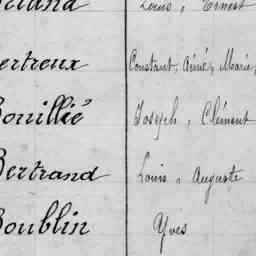 Louis, Ernest
ertreux Constant, Aimé, Marie,
Bouillié Joseph, Clément
Bertrand Louis, Auguste
Boublin Yves